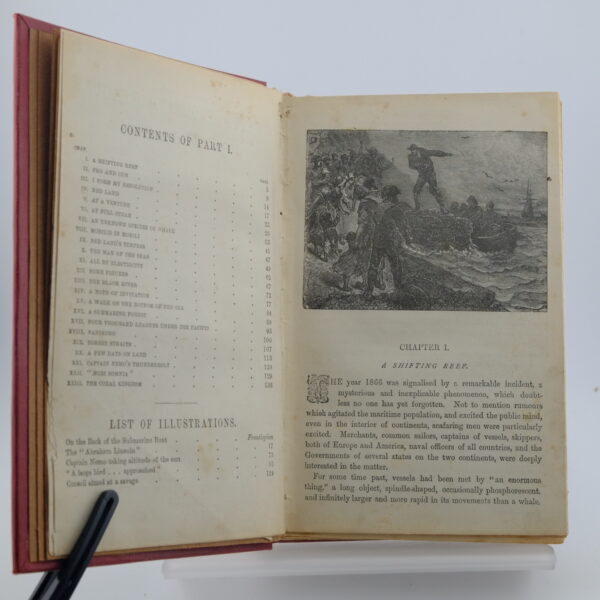 CONTENTS OF PART I.
CHAP. PAGE
I. A SHIFTING REEF 5
II. PRO AND CON 8
III. I FORM MY RESOLUTION
IV. NED LAND 14
V. AT A VENTURE 17
VI. AT FULL STEAM
VII. AN UNKNOWN SPECIES OF WHALE
VIII. MOBILIS IN MOBILI
IX. NED LAND'S TEMPERS
X. THE MAN OF THE SEAS
XI. ALL BY ELECTRICITY
XII. SOME FIGURES
XIII. THE BLACK RIVER
XIV. A NOTE OF INVITATION
XV. A WALK ON THE BOTTOM OF THE SEA 77
XVI. A SUBMARINE FOREST
XVII. FOUR THOUSAND LEAGUES UNDER THE PACIFIC
XVIII. VANIKORO
XIX. TORRES STRAITS 107
XX. A FEW DAYS ON LAND 113
XXI. CAPTAIN NEMO'S THUNDERBOLT
XXII. "ÆGRI SOMNIA" 129
XXIII. THE CORAL KINGDOM
LIST OF ILLUSTRATIONS.
On the Back of the Submarine Boat Frontispiece
The "Abraham Lincoln" 17
Captain Nemo taking altitude of the sun
"A large bird . . . approached"
Conseil aimed at a savage
CHAPTER I.
A SHIFTING REEF.
THE year 1866 was signalised by a remarkable incident, a
mysterious and inexplicable phenomenon, which doubt-
less no one has yet forgotten. Not to mention rumours
which agitated the maritime population, and excited the public mind,
even in the interior of continents, seafaring men were particularly
excited. Merchants, common sailors, captains of vessels, skippers,
both of Europe and America, naval officers of all countries, and the
Governments of several states on the two continents, were deeply
interested in the matter.
For some time past, vessels had been met by "an enormous
thing," a long object, spindle-shaped, occasionally phosphorescent,
and infinitely larger and more rapid in its movements than a whale.